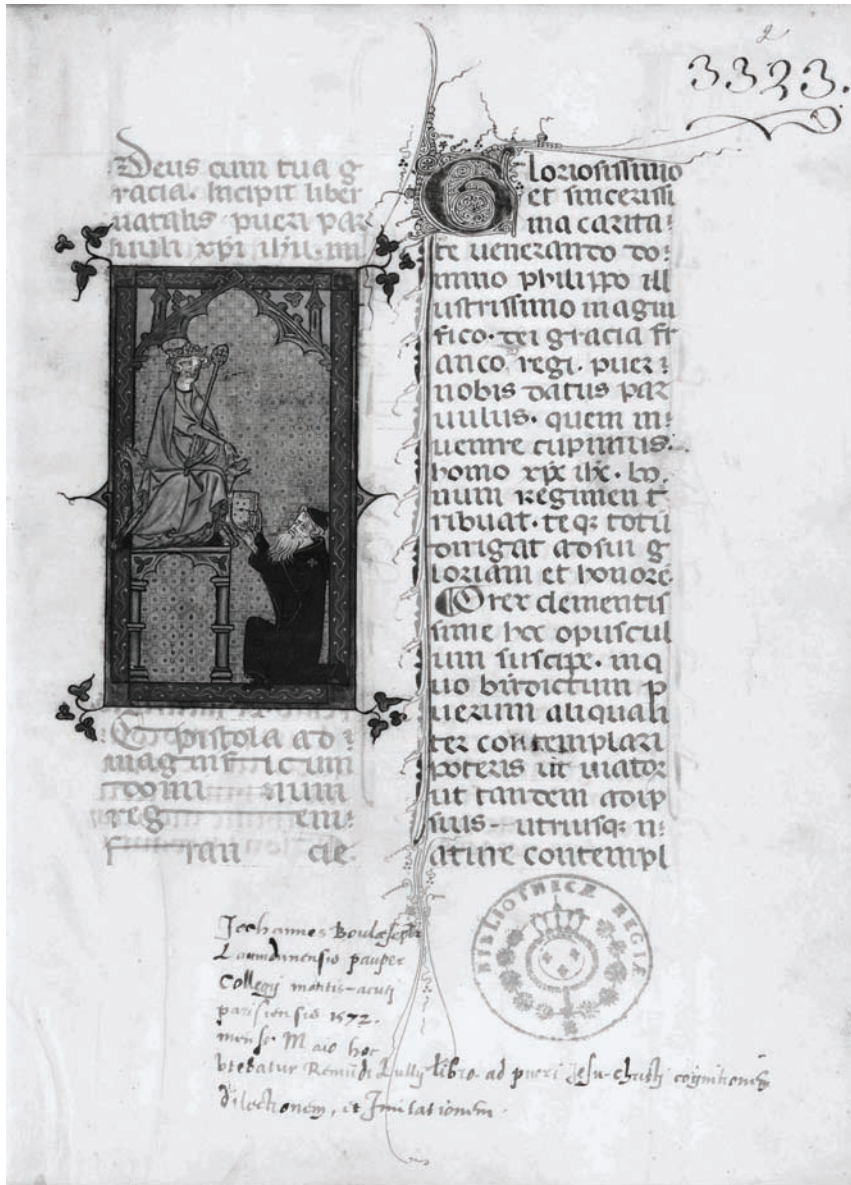 2
3323.
Deus cum tua g
racia. Incipit liber
natalis pueri par
uuli xpi ihu.
Epistola ad
magnificum
domi num
reg em
fran cie.
Gloriosissimo
et sincerissi
ma carita
te uenerando do
mino philippo ill
ustrissimo magni
fico. dei gracia fr
anco. regi. puer
nobis datus par
uulus. quem in
uenire cupimus.
homo xpc ihc. bo
num regimen t
ribuat. teq; totu
dirigat ad sui g
loriam et honore.
O rex clementis
sime hoc opuscul
um suscipe. in q
uo bndictum p
uerum aliquali
ter contemplari
poteris ut uiator
ut tandem adip
suis utriusq; n
ature contempl
Jochannes Boulæse
Laudunensis pauper
Collegij montis-acuti
parisiensis 1572.
mense Maio hoc
vtebatur Remūdi Lullij libro. ad pueri Jesu-christi cognitionem
dilectionem, et Imitationem.
BIBLIOTHECÆ REGIÆ